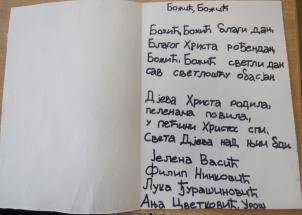 Божић, Божић
Божић, Божић благи дан,
Благог Христа рођендан,
Божић, Божић светли дан
сав светлошћу обасјан
Дјева Христа родила,
пеленама повила,
у пећини Христос спи,
Света Дјева над њим бди
Јелена Васић
Филип Нинковић
Лука Ђурашиновић
Ања Цветковић, Урош